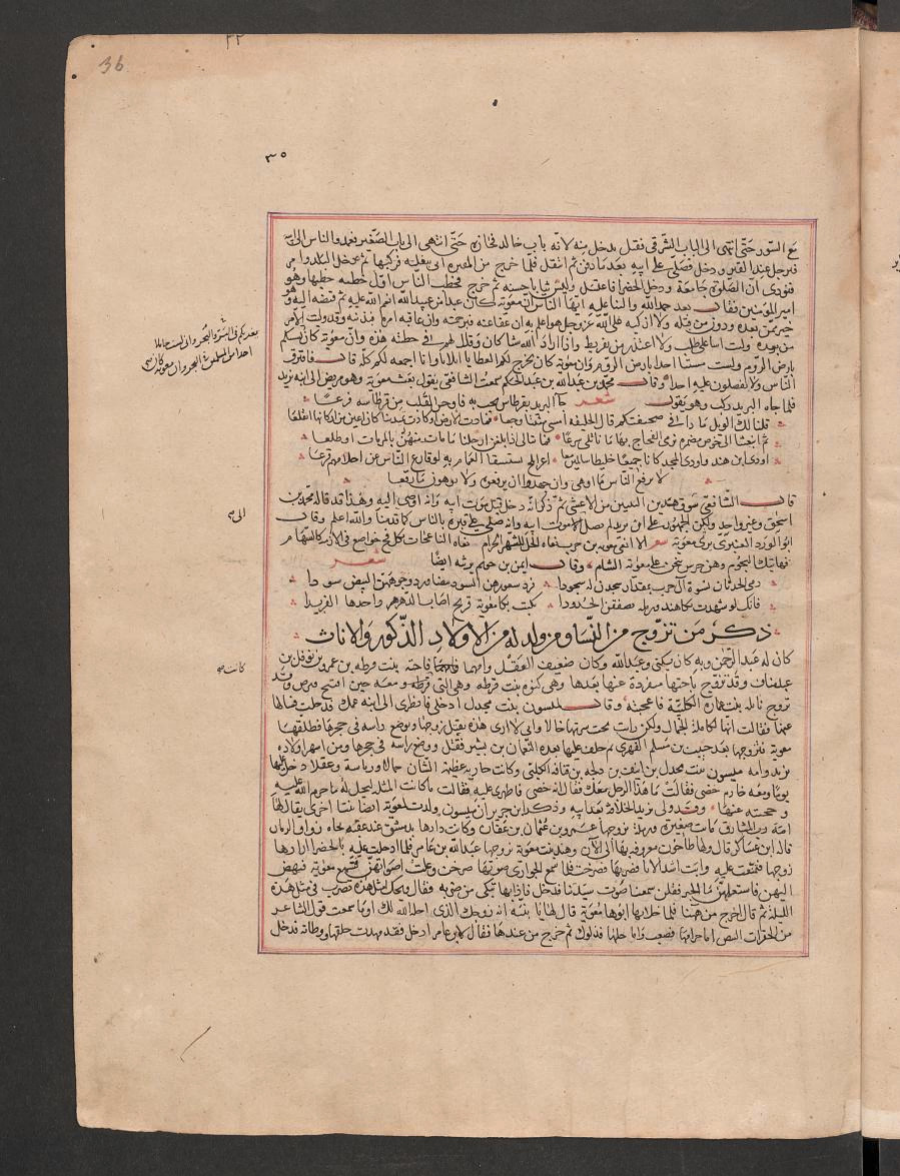 36
٣٥
مع السور حتى انتهى الى الباب الشرقي فقيل يدخل منه لانه باب خالد فجازه حتى انتهى الى باب الصغير
قبر جل عند القبر ودخل فصلى على ابيه بعد ما دفن ثم انفتل فلما خرج من المقبرة اتى ببغلة فركبها ثم دخل البلد وامر
فنودي ان الصلوة جامعة ودخل الخضرا فاغتسل ولبس ثيابا حسنة ثم خرج فخطب الناس اول خطبة خطبها وهو
امير المؤمنين فقال بعد حمد الله والثنا عليه ايها الناس ان معوية كان عبدا من عبيد الله انعم الله عليه ثم قبضه اليه وهو
خير ممن بعده ودون من قبله ولا ازكيه على الله عز وجل هو اعلم به ان عفا عنه فبرحمته وان عاقبه فبذنبه وقد وليت الامر
من بعده ولست اسا على طلب ولا اعتذر من تفريط واذا اراد الله شا كان وقال لهم في خطبته هذه وان معوية كان
بارض الروم ولست مشتيا احدا بارض الروم وان معوية كان يخرج لكم العطا اثلاثا وانا اجمعه لكم كله قال فافترق
الناس ولا يفضلون عليه احدا وقال محمد بن عبد الله بن عبد الحكم سمعت الشافعي يقول بعث معوية وهو مريض الى ابنه يزيد
فلما جاه البريد ركب وهو يقول شعر جا البريد بقرطاس يخب به فاوجس القلب من قرطاسه فزعا
قلنا لك الويل ماذا في صحيفتكم قال الخليفة امسى مثبتا وجعا فمادت الارض او كادت تميد بنا كان اغبر من اركانها انقلعا
ثم انبعثنا الى خوص مضمرة نرمي الفجاج بها ما ناتلي سرعا فما نبالي اذا بلغن ارحلنا ما مات منهن بالمومات او ظلعا
اودى ابن هند واودى المجد كانا جميعا خليطا سالمين معا اغر ابلج يستسقا الغمام به لو قارع الناس عن احلامهم قرعا
لا يرقع الناس ما اوهى وان جهدوا ان يرقعوه ولا يوهون ما رقعا
قال الشافعي سرق هذين البيتين من الاعشى ثم ذكر انه دخل قبل موت ابيه وانه اوصى اليه وهذا قد قاله محمد بن
اسحق وغير واحد ولكن الجمهور على ان يزيد لم يصل الا بعد موت ابيه وانه صلى على قبره بالناس كما قدمنا والله اعلم وقال
ابو الورد العنبري يرثي معوية شعر الا انعى معوية بن حرب نعاه الحل للشهر الحرام نعاه الناعجات بكل فج خواضع في الازمة كالسهام
فهاتيك النجوم وهن خرس ينحن على معوية الشام وقال ايمن بن خريم يرثيه ايضا شعر
رمى الحدثان نسوة ال حرب بمقدار سمدن له سمودا فرد شعورهن السود بيضا ورد وجوههن البيض سودا
فانك لو شهدت بكا هند ورملة يصفقن الخدودا بكيت بكا معولة قريح اصاب الدهر واحدها الفريدا
ذكر من تزوج من النسا ومن ولد له من الاولاد الذكور والاناث
كان له عبد الرحمن وبه كان يكنى وعبد الله وكان ضعيف العقل وامهما فاختة بنت قرظة بن عمرو بن نوفل بن
عبد مناف وقد تزوج باختها منفردة عنها بعدها وهي كنوة بنت قرظة وهي التي معه حين افتتح قبرص وقد
تزوج نايلة بنت عمارة الكلبية فاعجبته وقال لميسون بنت بحدل ادخلي فانظري الى ابنة عمك فدخلت فسالها
عنها فقالت انها لكاملة الجمال ولكن رايت تحت سرتها خالا واني لا ارى هذه يقتل زوجها ويوضع راسه في حجرها فطلقها
معوية فتزوجها بعد حبيب بن مسلمة الفهري ثم خلف عليها بعده النعمان بن بشير فقتل ووضع راسه في حجرها ومن اشهر اولاده
يزيد وامه ميسون بنت بحدل بن انيف بن دلجة بن قنافة الكلبي وكانت حازمة عظيمة الشان جمالا ورياسة وعقلا دخل عليها
يوما ومعه خادم خصي فقالت ما هذا الرجل معك فقال انه خصي فاظهري عليه فقالت ما كانت المثلة لتحل له ما حرم الله عليه
وحجبته عنها وقد ولي يزيد الخلافة بعد ابيه وذكر ابن جرير ان ميسون ولدت لمعوية ايضا بنتا اخرى يقال لها
امة رب المشارق ماتت صغيرة ورملة تزوجها عمرو بن عثمان بن عفان وكانت دارها بدمشق عند عقبة
قاله ابن عساكر قال ولها طاحون معروفة بها الى الان وهند بنت معوية تزوجها عبد الله بن عامر فلما ادخلت عليه بالخضرا ارادها
زوجها فتمنعت عليه وابت اشد الابا فضربها فصرخت فلما سمع الجواري صوتها صرخن وعلت اصواتهن فسمع معوية فنهض
اليهن فاستعلمهن ما الخبر فقلن سمعنا صوت سيدتنا فدخل فاذا بها تبكي من ضربه فقال ويحك مثل هذه تضرب في مثل هذه
الليلة ثم قال اخرج من هاهنا فلما خلا بها ابوها معوية قال لها يا بنية انه زوجك الذي احله الله لك او ما سمعت قول الشاعر
من الخفرات البيض اما حرامها فصعب واما حلها فذلول ثم خرج من عندها فقال لابن عامر ادخل فقد مهدت خلقها ووطاته فدخل
يغزيكم في البر والبحر واني لست حاملا
احدا من المسلمين في البحر وان معوية كان
كانت